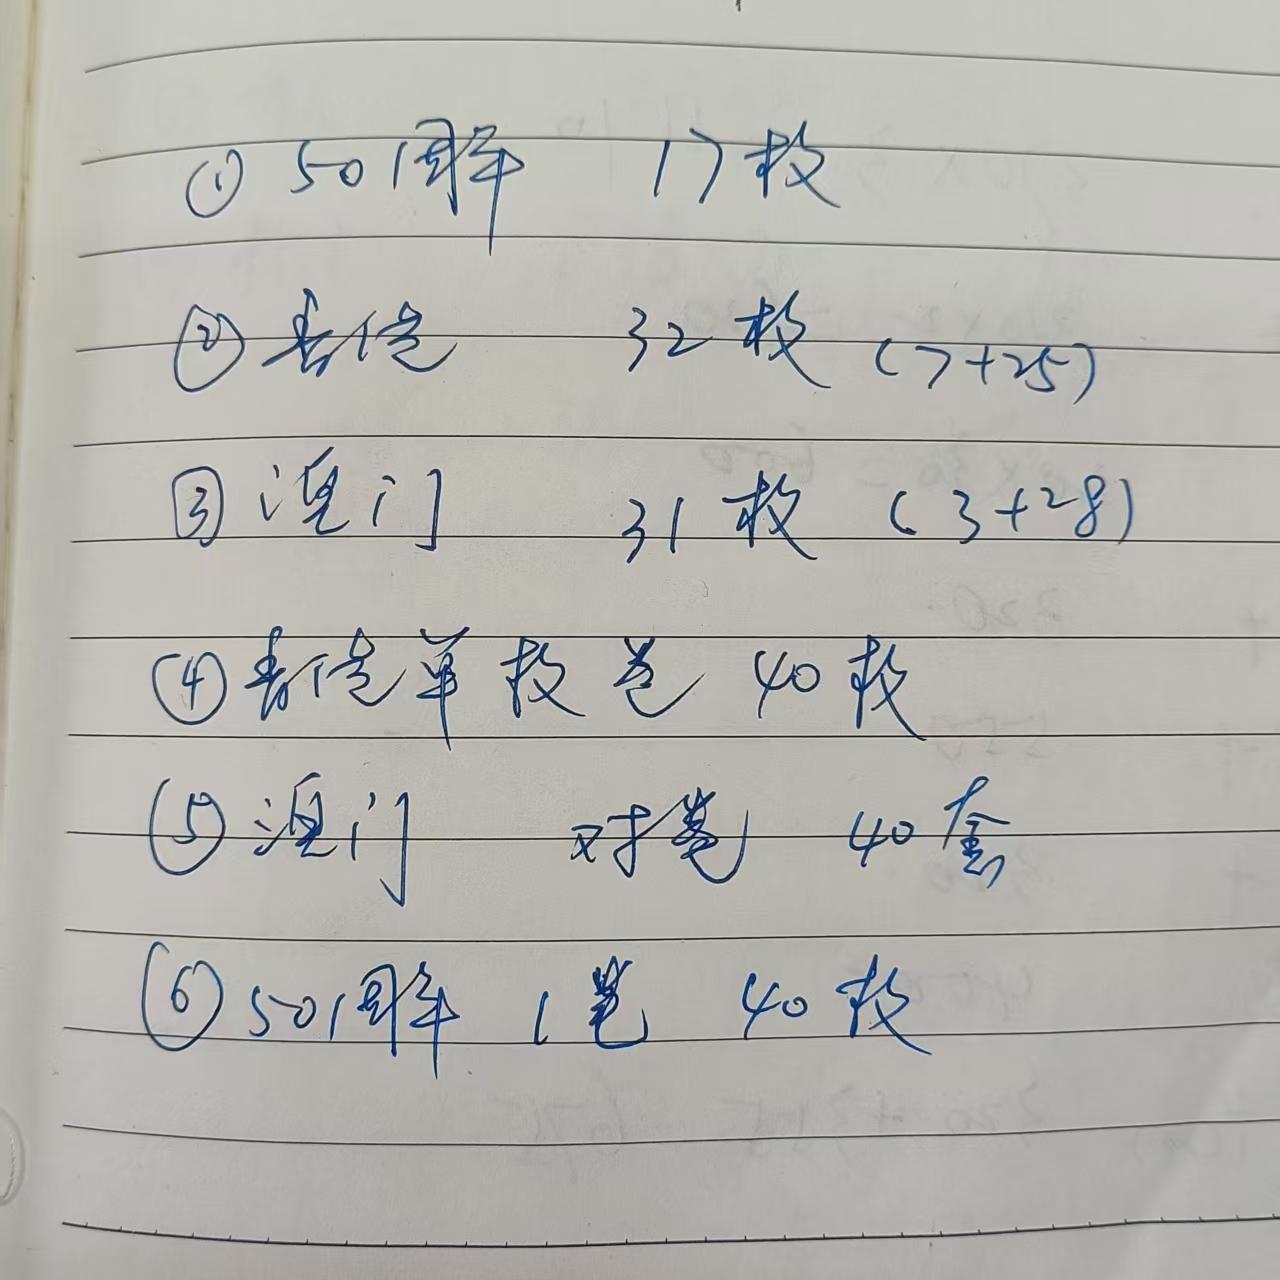 ① 50周年 17枚
② 普陀 32枚 (7+25)
③ 澳门 31枚 (3+28)
④ 普陀单枚卷 40枚
⑤ 澳门 对卷 40套
⑥ 50周年 1卷 40枚